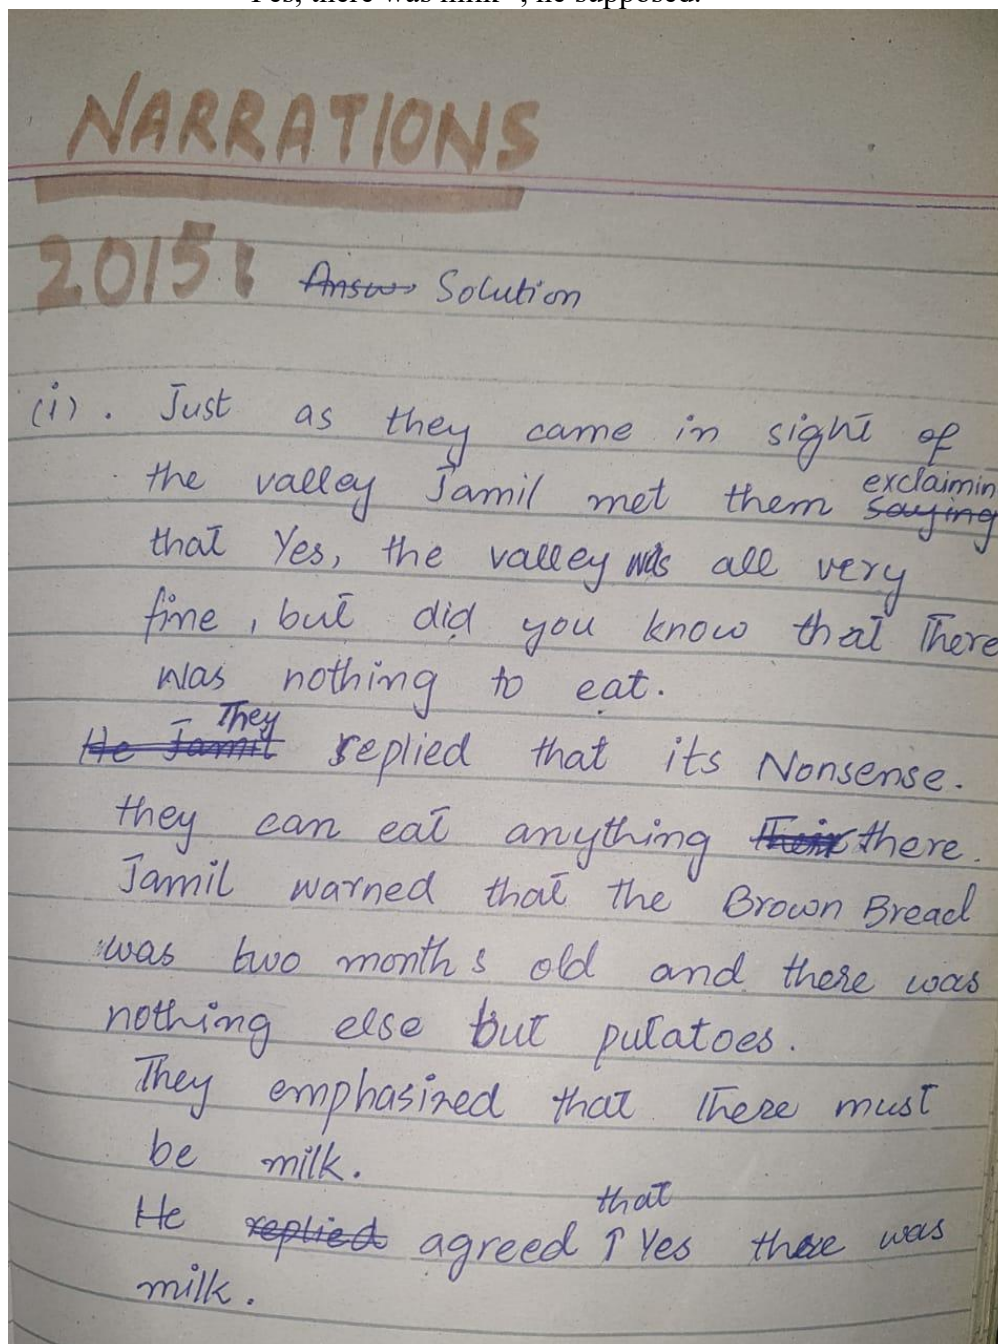 Yes, there was milk", he supposed.
NARRATIONS
2015: Answ Solution
(i). Just as they came in sight of
the valley Jamil met them saying exclaimin
that Yes, the valley was all very
fine, but did you know that There
was nothing to eat.
He Jamil They replied that its Nonsense.
they can eat anything Their there.
Jamil warned that the Brown Bread
was two months old and there was
nothing else but putatoes.
They emphasized that There must
be milk.
He replied agreed ↑ that Yes there was
milk.